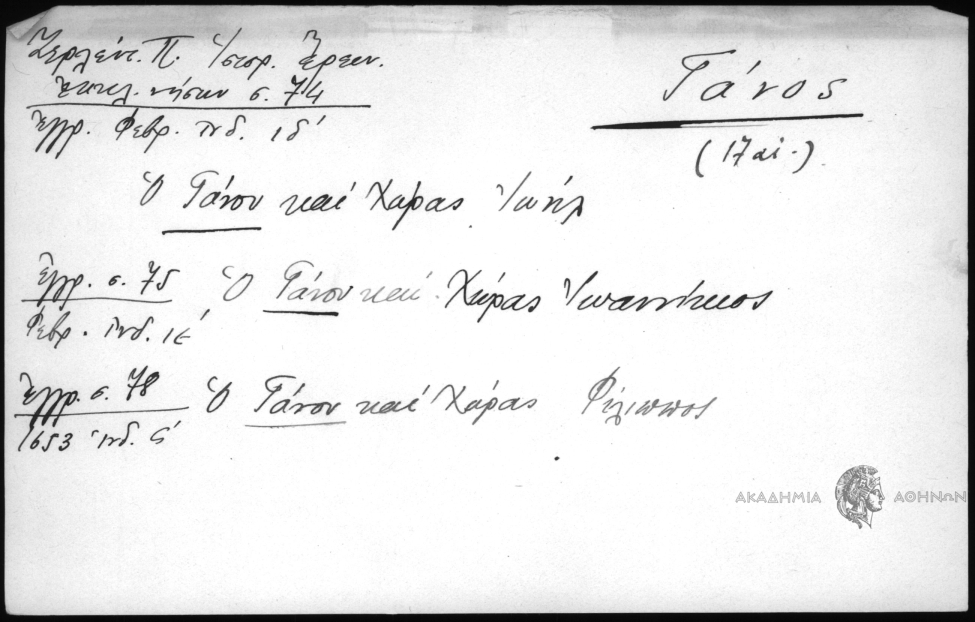 Ζερλέντ. Π. Ἱστορ. Ἔρευν.
Ἐκκλ. νήσων σ. 74
Ἔγγρ. Φεβρ. ἰνδ. ιδ΄
Γάνος
(17 αἰ.)
Ὁ Γάνου καὶ Χώρας Ἰωήλ
Ἔγγρ. σ. 75
Φεβρ. ἰνδ. ιε΄
Ὁ Γάνου καὶ Χώρας Ἰωαννίκιος
Ἔγγρ. σ. 78
1653 ἰνδ. ϛ΄
Ὁ Γάνου καὶ Χώρας Φίλιππος
ΑΚΑΔΗΜΙΑ ΑΘΗΝΩΝ